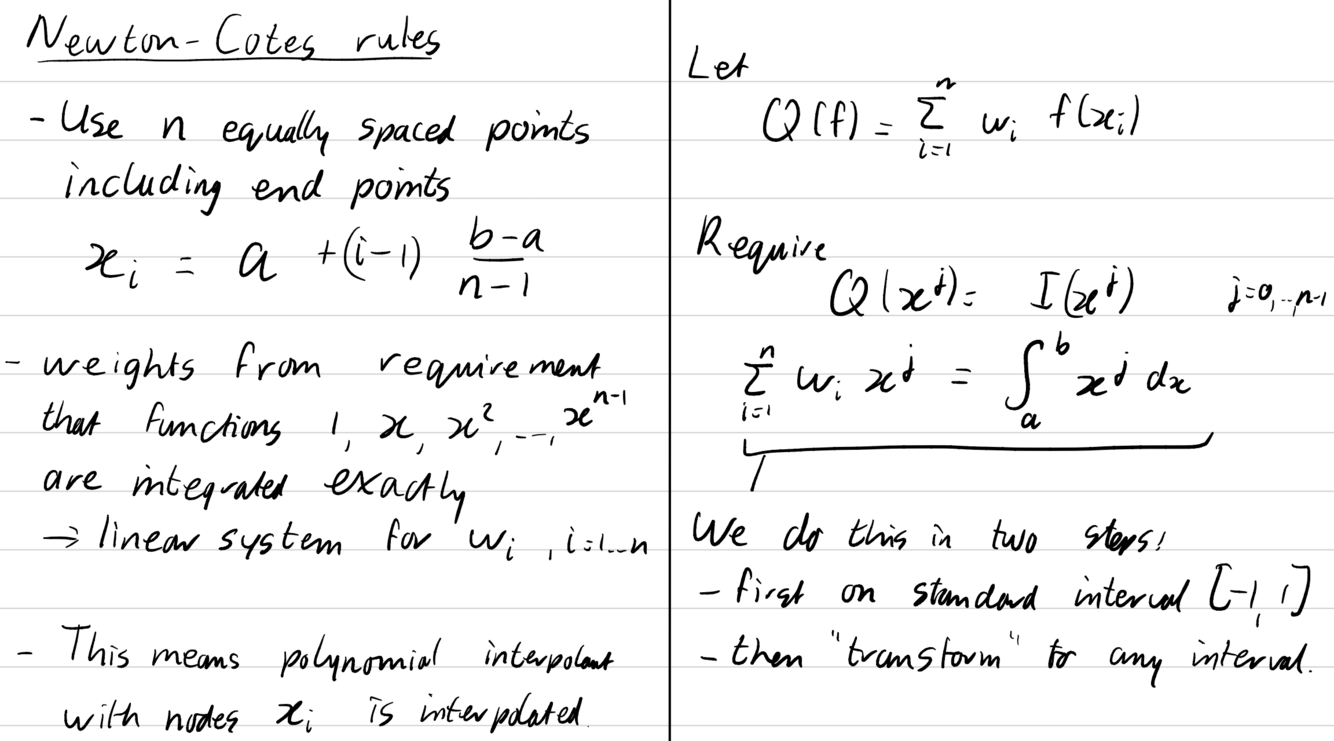 Newton-Cotes rules
- Use n equally spaced points
including end points
x_i = a + (i-1) \frac{b-a}{n-1}
- weights from requirement
that functions 1, x, x^2, ..., x^{n-1}
are integrated exactly
→ linear system for w_i , i=1...n
- This means polynomial interpolant
with nodes x_i is interpolated.
Let
Q(f) = \sum_{i=1}^{n} w_i f(x_i)
Require
Q(x^j) = I(x^j) j=0,..,n-1
\sum_{i=1}^{n} w_i x^j = \int_a^b x^j dx
We do this in two steps:
- first on standard interval [-1, 1]
- then "transform" to any interval.